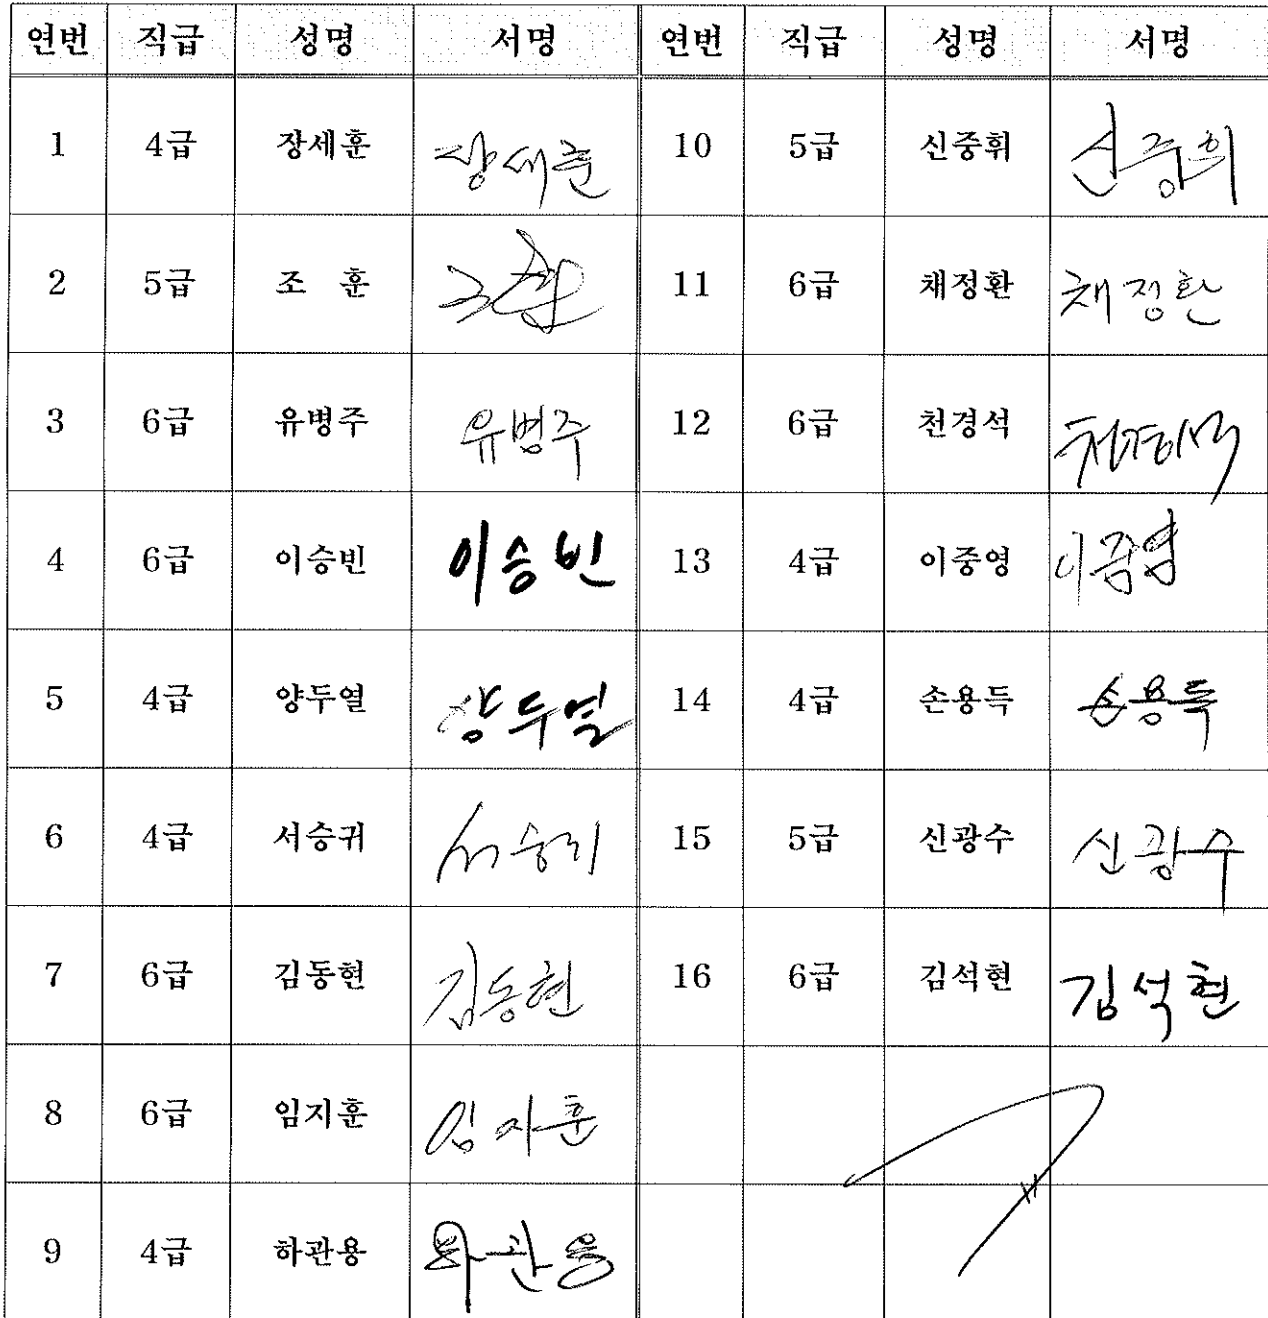 연번 직급 성명 서명 연번 직급 성명 서명
1 4급 장세훈 장세훈 10 5급 신중휘 신중휘
2 5급 조 훈 11 6급 채정환 채정환
3 6급 유병주 유병주 12 6급 천경석 천경석
4 6급 이승빈 이승빈 13 4급 이중영 이중영
5 4급 양두열 양두열 14 4급 손용득 손용득
6 4급 서승귀 서승귀 15 5급 신광수 신광수
7 6급 김동현 김동현 16 6급 김석현 김석현
8 6급 임지훈 임지훈
9 4급 하관용 하관용